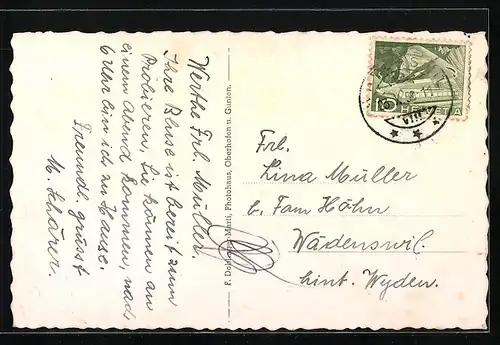 Werthe Frl. Müller.
Ihre Bluse ist bereit zum
Probieren, Sie können an
einem Abend kommen, nach
6 Uhr bin ich zu Hause.
Freundl. grüsst
M. Schärer.
Photohaus, Oberhofen u. Gunten.
Frl.
Lina Müller
b. Fam Höhn
Wädenswil.
hint. Wyden.
10